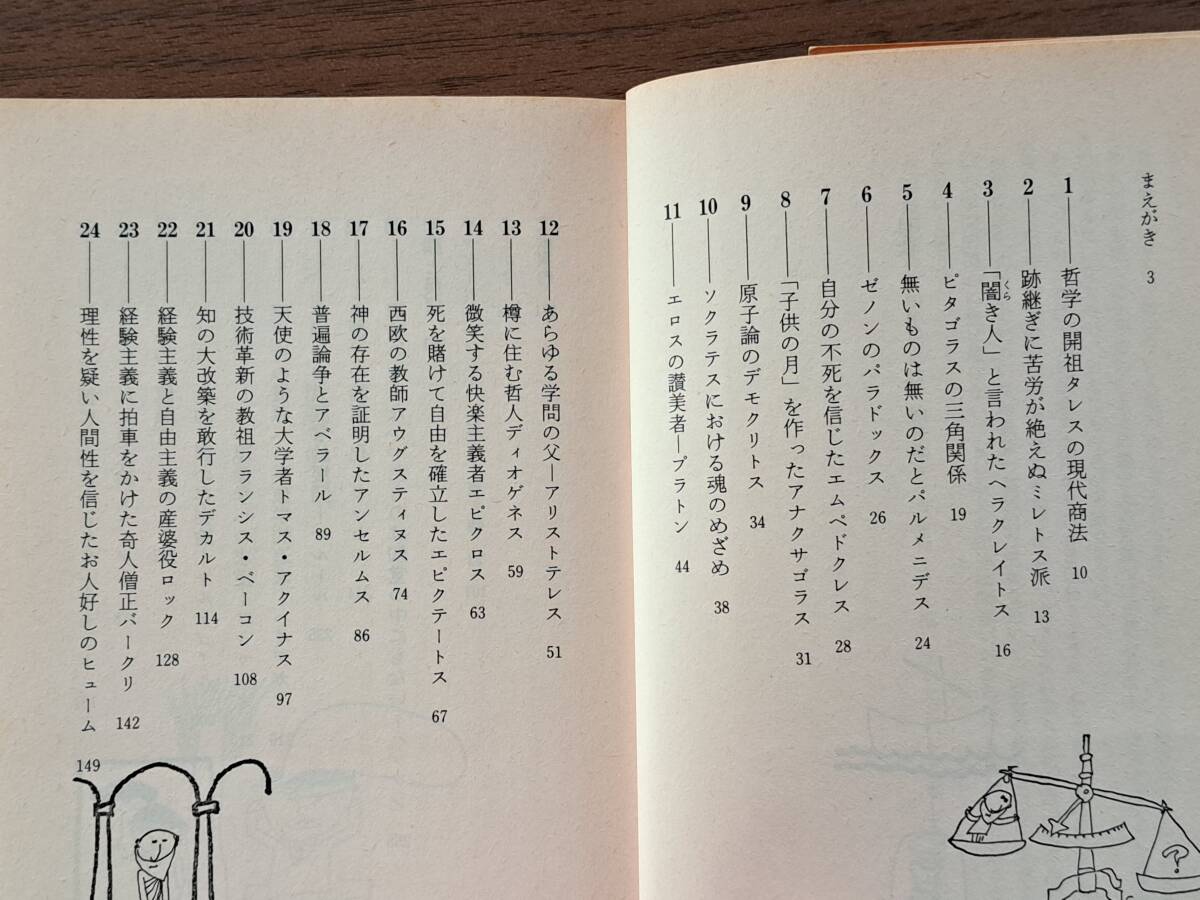 まえがき 3
1——哲学の開祖タレスの現代商法 10
2——跡継ぎに苦労が絶えぬミレトス派 13
3——「闇き人」と言われたヘラクレイトス 16
くら
4——ピタゴラスの三角関係 19
5——無いものは無いのだとパルメニデス 24
6——ゼノンのパラドックス 26
7——自分の不死を信じたエムペドクレス 28
8——「子供の月」を作ったアナクサゴラス 31
9——原子論のデモクリトス 34
10——ソクラテスにおける魂のめざめ 38
11——エロスの讃美者—プラトン 44
12——あらゆる学問の父—アリストテレス 51
13——樽に住む哲人ディオゲネス 59
14——微笑する快楽主義者エピクロス 63
15——死を賭けて自由を確立したエピクテートス 67
16——西欧の教師アウグスティヌス 74
17——神の存在を証明したアンセルムス 86
18——普遍論争とアベラール 89
19——天使のような大学者トマス・アクイナス 97
20——技術革新の教祖フランシス・ベーコン 108
21——知の大改築を敢行したデカルト 114
22——経験主義と自由主義の産婆役ロック 128
23——経験主義に拍車をかけた奇人僧正バークリ 142
24——理性を疑い人間性を信じたお人好しのヒューム 149
?